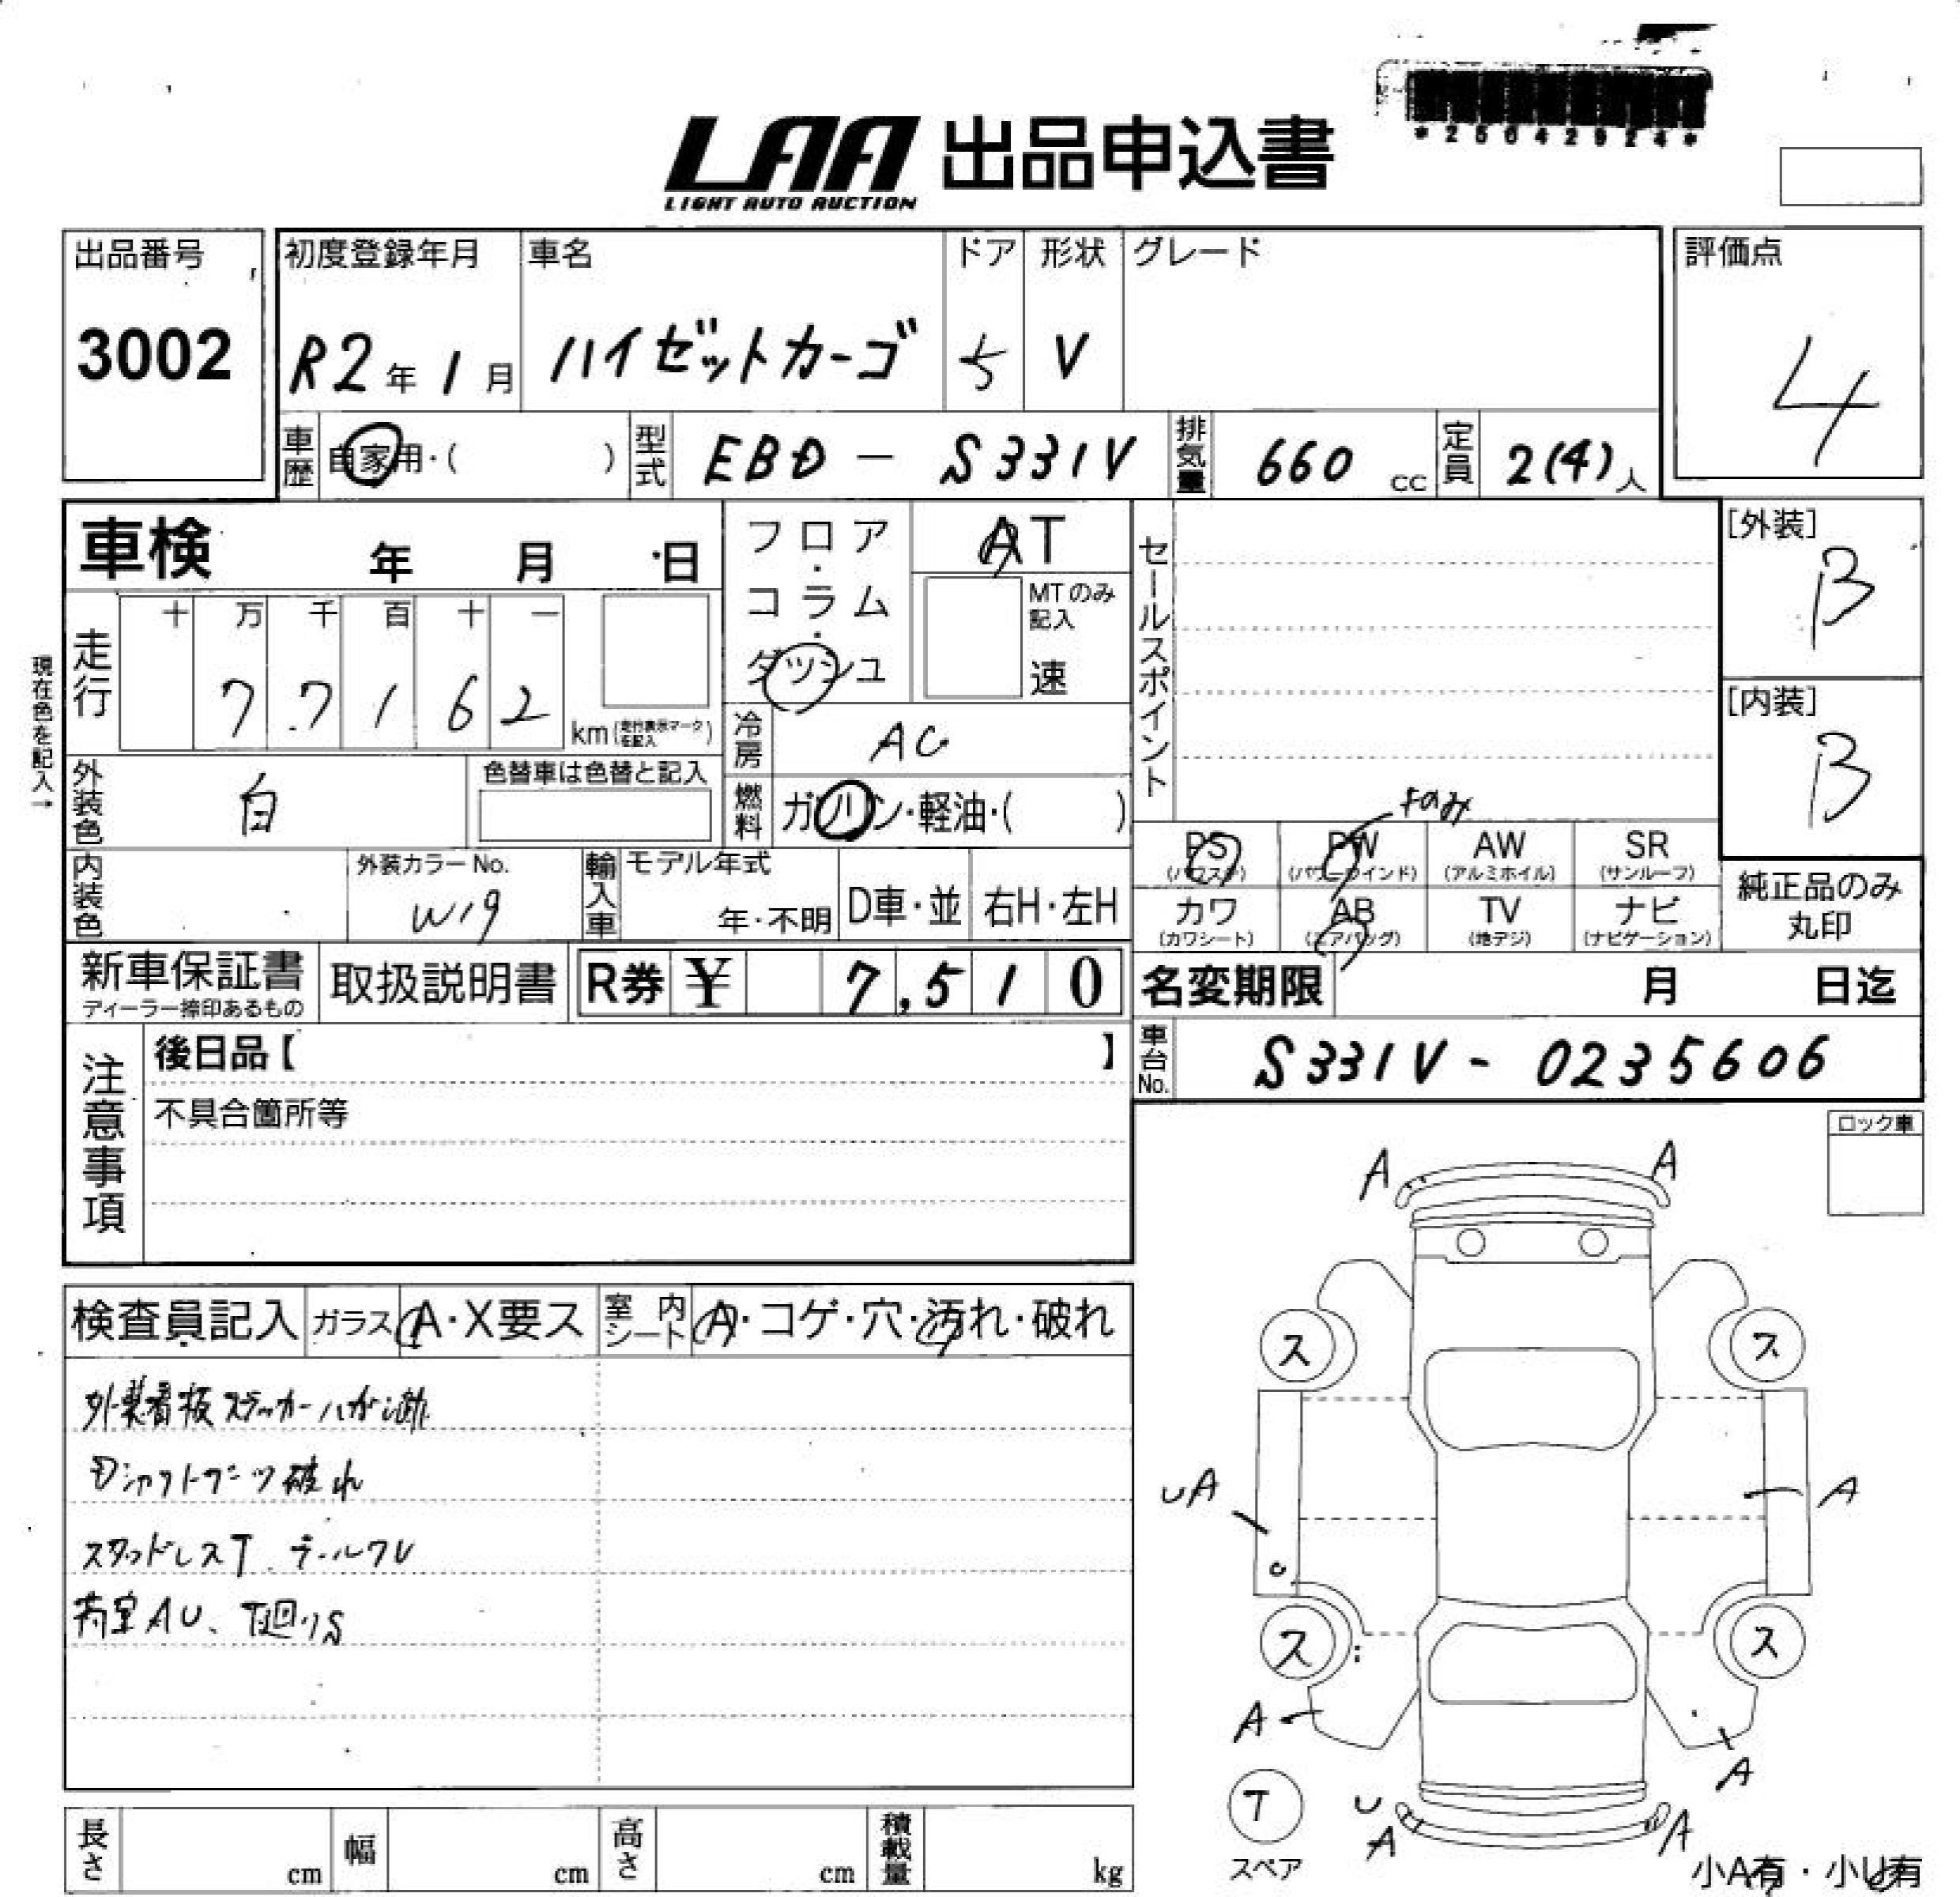 LAA 出品申込書
LIGHT AUTO AUCTION
*25042924*
出品番号
3002
初度登録年月
R2年1月
車名
ハイゼットカーゴ
ドア
5
形状
V
グレード
評価点
4
車歴
自家用・( )
型式
EBD - S331V
排気量
660 cc
定員
2(4)人
車検 年 月 日
フロア・コラム・ダッシュ
AT
MTのみ記入
速
セールスポイント
[外装]
B
[内装]
B
現在色を記入→
走行
十 万 千 百 十 一
7 7 1 6 2
km(走行表示マークを記入)
冷房
AC
外装色
白
色替車は色替と記入
燃料
ガソリン・軽油・( )
fのみ
PS
(パワステ)
PW
(パワーウインド)
AW
(アルミホイル)
SR
(サンルーフ)
カワ
(カワシート)
AB
(エアバッグ)
TV
(地デジ)
ナビ
(ナビゲーション)
純正品のみ
丸印
内装色
外装カラーNo.
W19
輸入車
モデル年式
年・不明
D車・並
右H・左H
新車保証書
ディーラー捺印あるもの
取扱説明書
R券 ¥ 7,510
名変期限 月 日迄
車台No.
S331V - 0235606
注意事項
後日品【 】
不具合箇所等
ロック車
検査員記入
ガラス
A・X要ス
室内シート
A・コゲ・穴・汚れ・破れ
外装看板ステッカーハガシ跡
Dシャフトブーツ破れ
スタッドレスT テールワレ
荷室AU、下廻りS
A
A
ス
ス
UA
A
ス
ス
A
A
T
スペア
U
A
A
小A有・小U有
長さ cm
幅 cm
高さ cm
積載量 kg